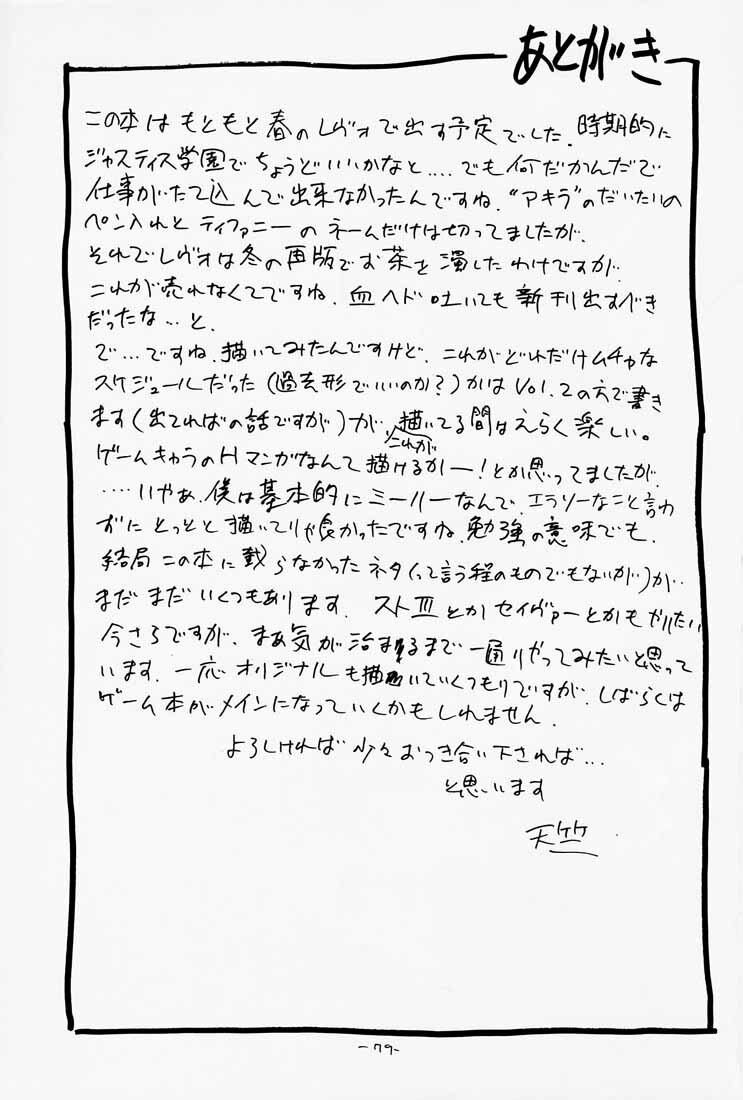 あとがき
この本はもともと春のレヴォで出す予定でした。時期的に
ジャスティス学園でちょうどいいかなと‥‥でも何だかんだで
仕事がたて込んで出来なかったんですね。“アキラ”のだいたいの
ペン入れとティファニーのネームだけは切ってましたが。
それでレヴォは冬の再版でお茶を濁したわけですが
これが売れなくてですね。血ヘド吐いても新刊出すべき
だったな‥と。
で…ですね。描いてみたんですけど、これがどれだけムチャな
スケジュールだった(過去形でいいのか?)かはVol.2の方で書き
ます(出てればの話ですが)が、描いてる間はえらく楽しい。
ゲームキャラのHマンガなんてこれが描けるかー!とか思ってましたが、
‥‥いやぁ、僕は基本的にミーハーなんで、エラソーなこと言わ
ずにとっとと描いてりゃ良かったですね。勉強の意味でも。
結局この本に載らなかったネタ(って言う程のものでもないが)が
まだまだいくつもあります。ストⅢとかセイヴァーとかもやりたい
今さらですが、まぁ気が治まるまで一通りやってみたいと思って
います。一応オリジナルも描いていくつもりですが、しばらくは
ゲーム本がメインになっていくかもしれません。
よろしければ少々おつき合い下されば…
と思います
天竺
-79-